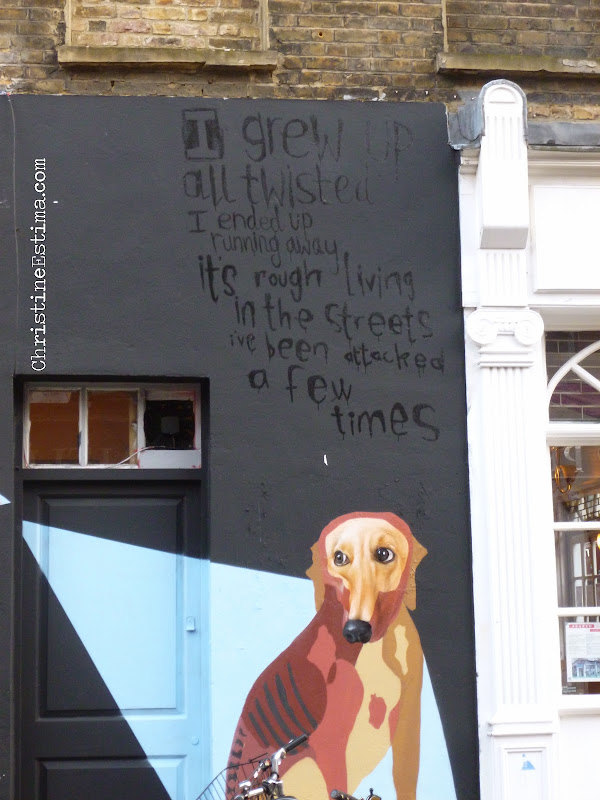 I grew up
all twisted
I ended up
running away
it's rough living
in the streets
i've been attacked
a few
times
ChristineEstima.com